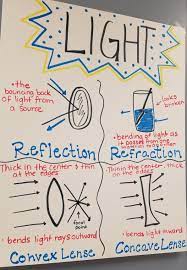 LIGHT
• the bouncing back of light from a source.
Reflection
looks broken
• bending of light as it passes from one
Refraction
Thick in the center & thin at the edges
focal point
• bends light rays outward
Convex Lense
Thick in the center, thick on the edges
• bends light inward
Concave Lense